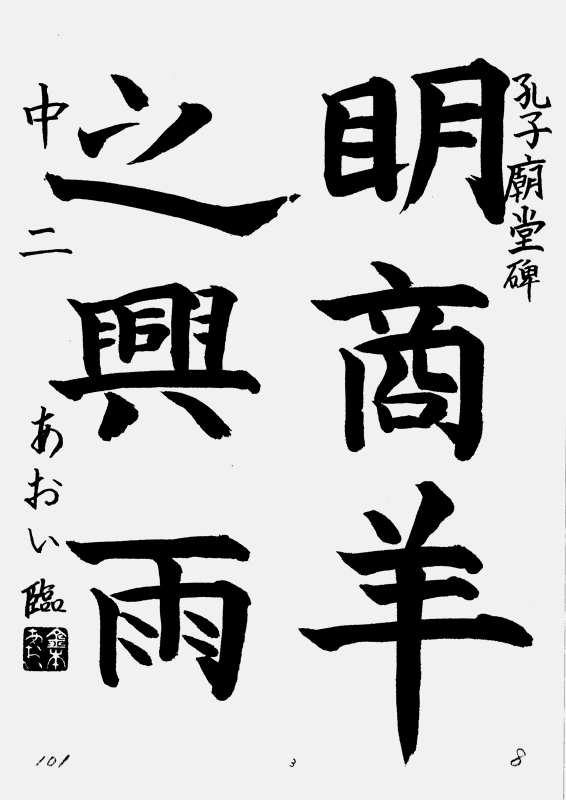 孔子廟堂碑
明商羊
之興雨
中二 あおい臨
101
3
8